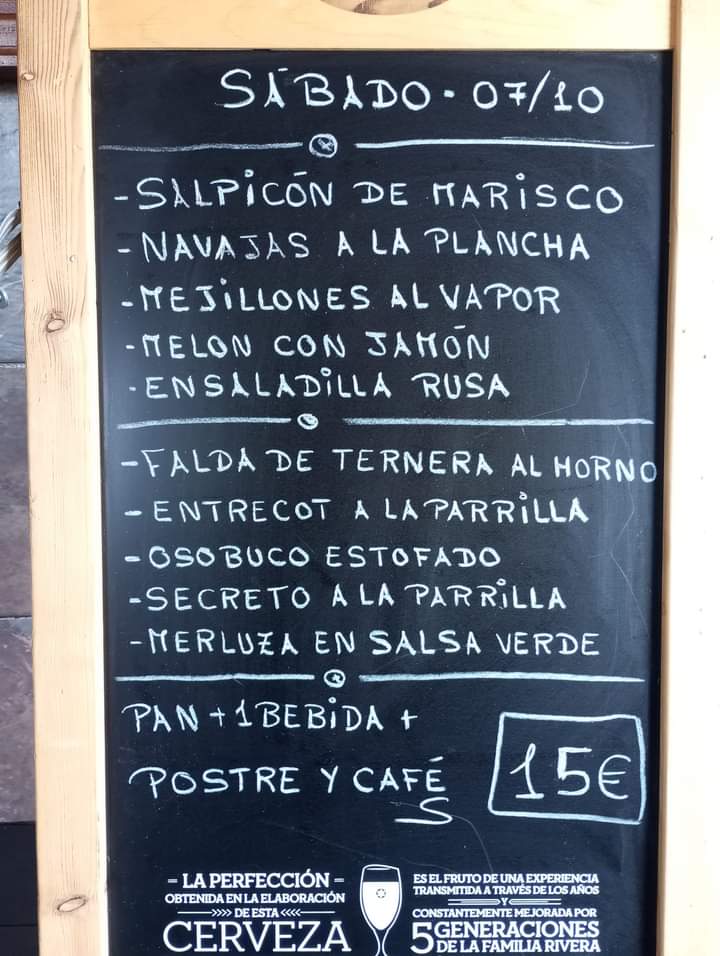 SÁBADO - 07/10
- SALPICÓN DE MARISCO
- NAVAJAS A LA PLANCHA
- MEJILLONES AL VAPOR
- MELON CON JAMÓN
- ENSALADILLA RUSA
- FALDA DE TERNERA AL HORNO
- ENTRECOT A LA PARRILLA
- OSOBUCO ESTOFADO
- SECRETO A LA PARRILLA
- MERLUZA EN SALSA VERDE
PAN + 1 BEBIDA +
POSTRE Y CAFÉ
15€
S
LA PERFECCIÓN
OBTENIDA EN LA ELABORACIÓN
DE ESTA
CERVEZA
ES EL FRUTO DE UNA EXPERIENCIA
TRANSMITIDA A TRAVÉS DE LOS AÑOS
Y
CONSTANTEMENTE MEJORADA POR
5 GENERACIONES
DE LA FAMILIA RIVERA